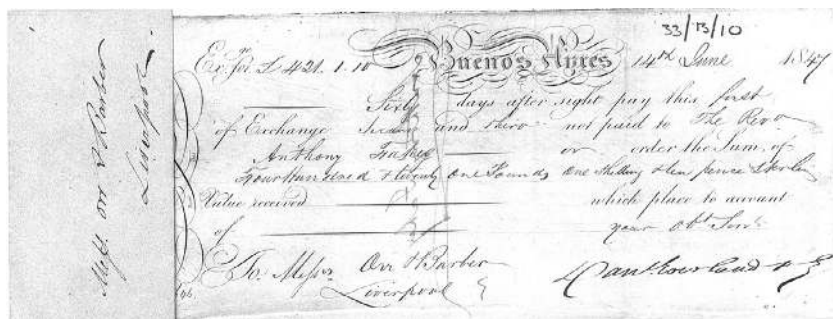 Messrs Orr & Barber
Liverpool
33/13/10
Exge for £ 421.1.10 Buenos Ayres 14th June 1847
Sixty days after sight pay this first
of Exchange second and third not paid to The Revd
Anthony or order the Sum of
Four Hundred & twenty One Pounds One Shilling & ten pence Sterling
Value received which place to account
of your obt Servts
To Messrs Orr & Barber
Liverpool